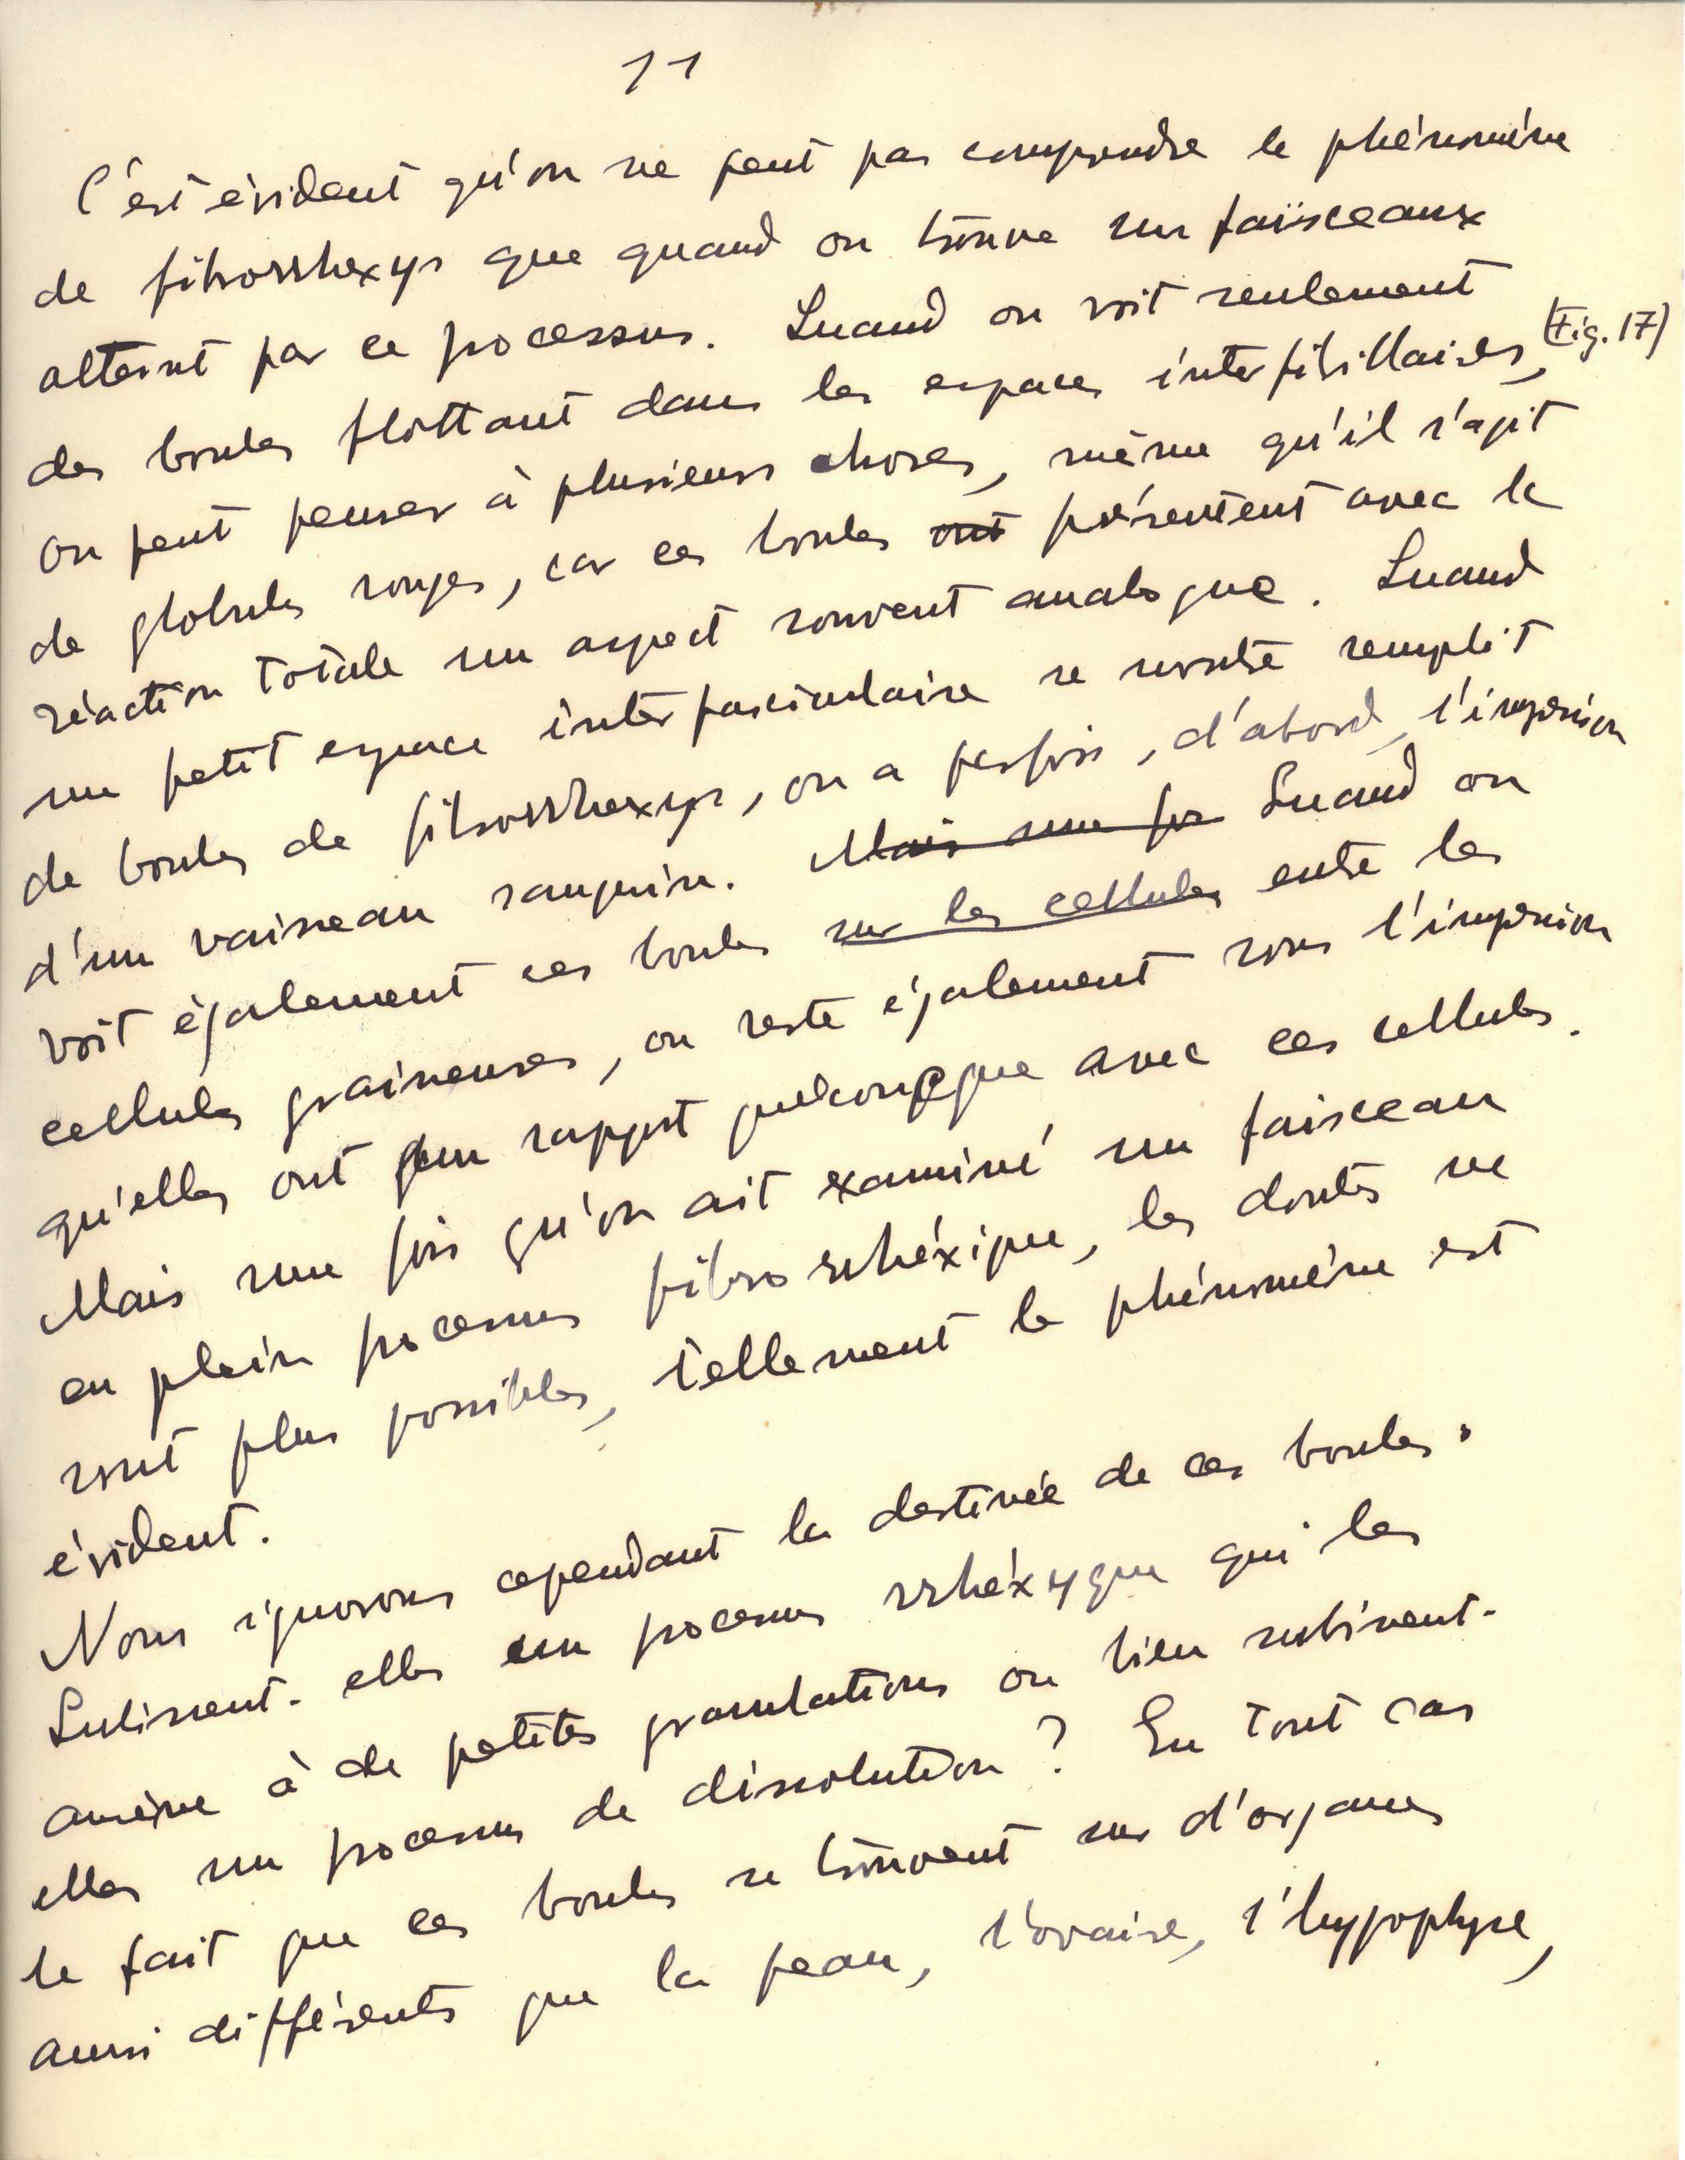 11
C'est évident qu'on ne peut pas comprendre le phénomène
de fibrorrhexys que quand on trouve un faisceaux
atteint par ce processus. Quand on voit seulement
des boules flottant dans les espaces interfibrillaires, (Fig. 17)
on peut penser à plusieurs choses, même qu'il s'agit
de globules rouges, car ces boules ont présentent avec le
réaction totale un aspect souvent analogue. Quand
un petit espace interfasciculaire se montre remplit
de boules de fibrorrhexys, on a parfois, d'abord, l'impresion
d'un vaisseau sanguin. Mais une fois Quand on
voit également ces boules sur les cellules entre les
cellules graisseuses, on reste également sous l'impresion
qu'elles ont un rapport quelconque avec ces cellules.
Mais une fois qu'on ait examiné un faisceau
en plein processus fibrorrhéxique, les doutes ne
sont plus possibles, tellement le phénomène est
évident.
Nous ignorons cependant la destinée de ces boules.
Subissent-elles un processus rrhéxyque qui les
amène à de petites granulations ou bien subissent-
elles un processus de dissolution? En tout cas
le fait que ces boules se trouvent sur d'organes
aussi différents que la peau, l'ovaire, l'hypophyse,